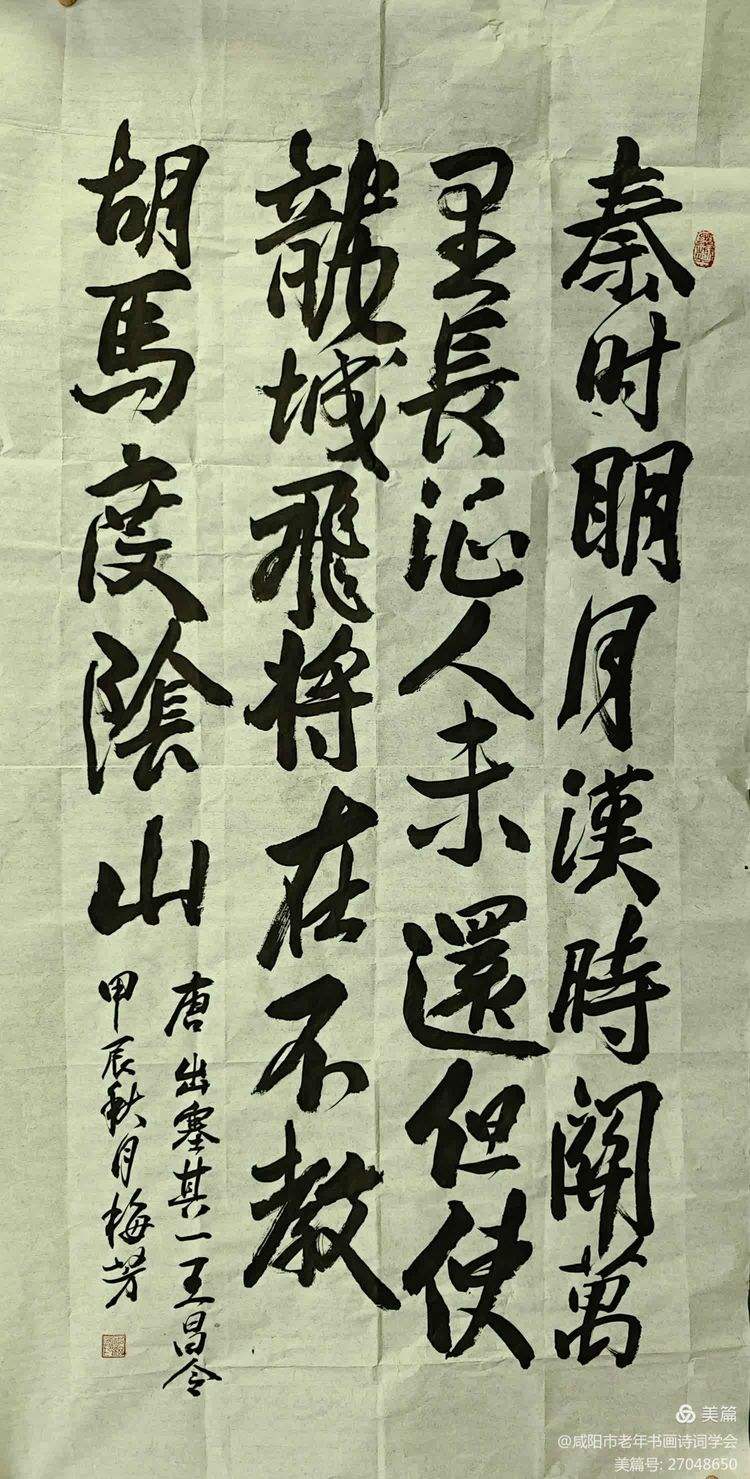 秦时明月漢時關萬
里長征人未還但使
龍城飛将在不教
胡馬度陰山
唐出塞其一王昌令
甲辰秋月梅芳
美篇
@咸阳市老年书画诗词学会
美篇号: 27048650